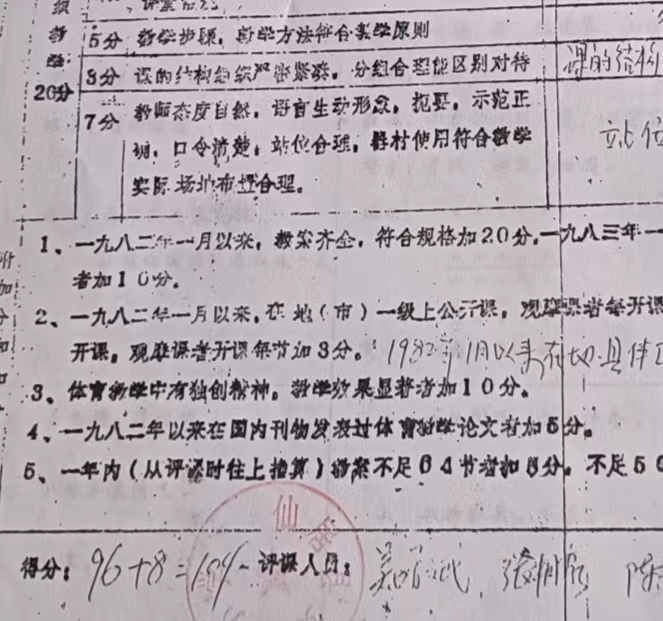 须
教
学
20分
5分 教学步骤，教学方法符合教学原则
3分 课的结构组织严密紧凑，分组合理能区别对待
课的结构
7分 教师态度自然，语言生动形象，扼要，示范正
确，口令清楚，站位合理，器材使用符合教学
站位
实际 场地布置合理。
附
加
分
1、一九八二年一月以来，教案齐全，符合规格加20分，一九八三年一
者加10分。
2、一九八二年一月以来，在地（市）一级上公开课，观摩课者每开课
开课，观摩课者开课每节加3分。1982年1月以来
3、体育教学中有独创精神。教学效果显著者加10分。
4、一九八二年以来在国内刊物发表过体育教学论文者加5分。
5、一年内（从评课时往上推算）教案不足64节者扣5分。不足5
得分：96+8=104 评课人员：
仙